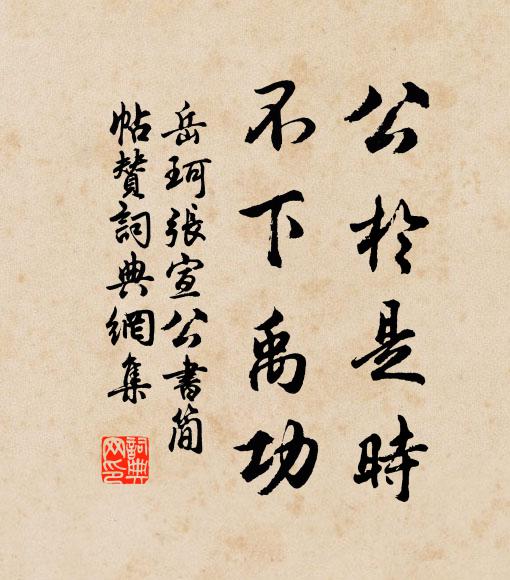 公於是時
不下禹功
岳珂張宣公書簡
帖贊詞典網集
詞典網印